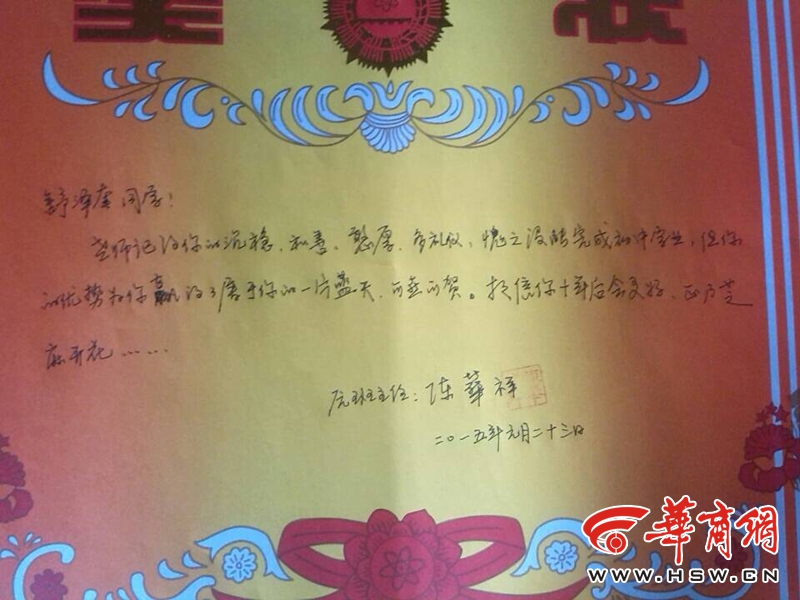 同学：
老师记得你的沉稳、和善、憨厚、多礼仪，愧之没能完成初中学业，但你
的优势为你赢得了属于你的一片蓝天，可喜可贺。相信你十年后会更好，正乃芝
麻开花……
原班主任：陈華祥
二〇一五年元月二十三日
華商網
WWW.HSW.CN